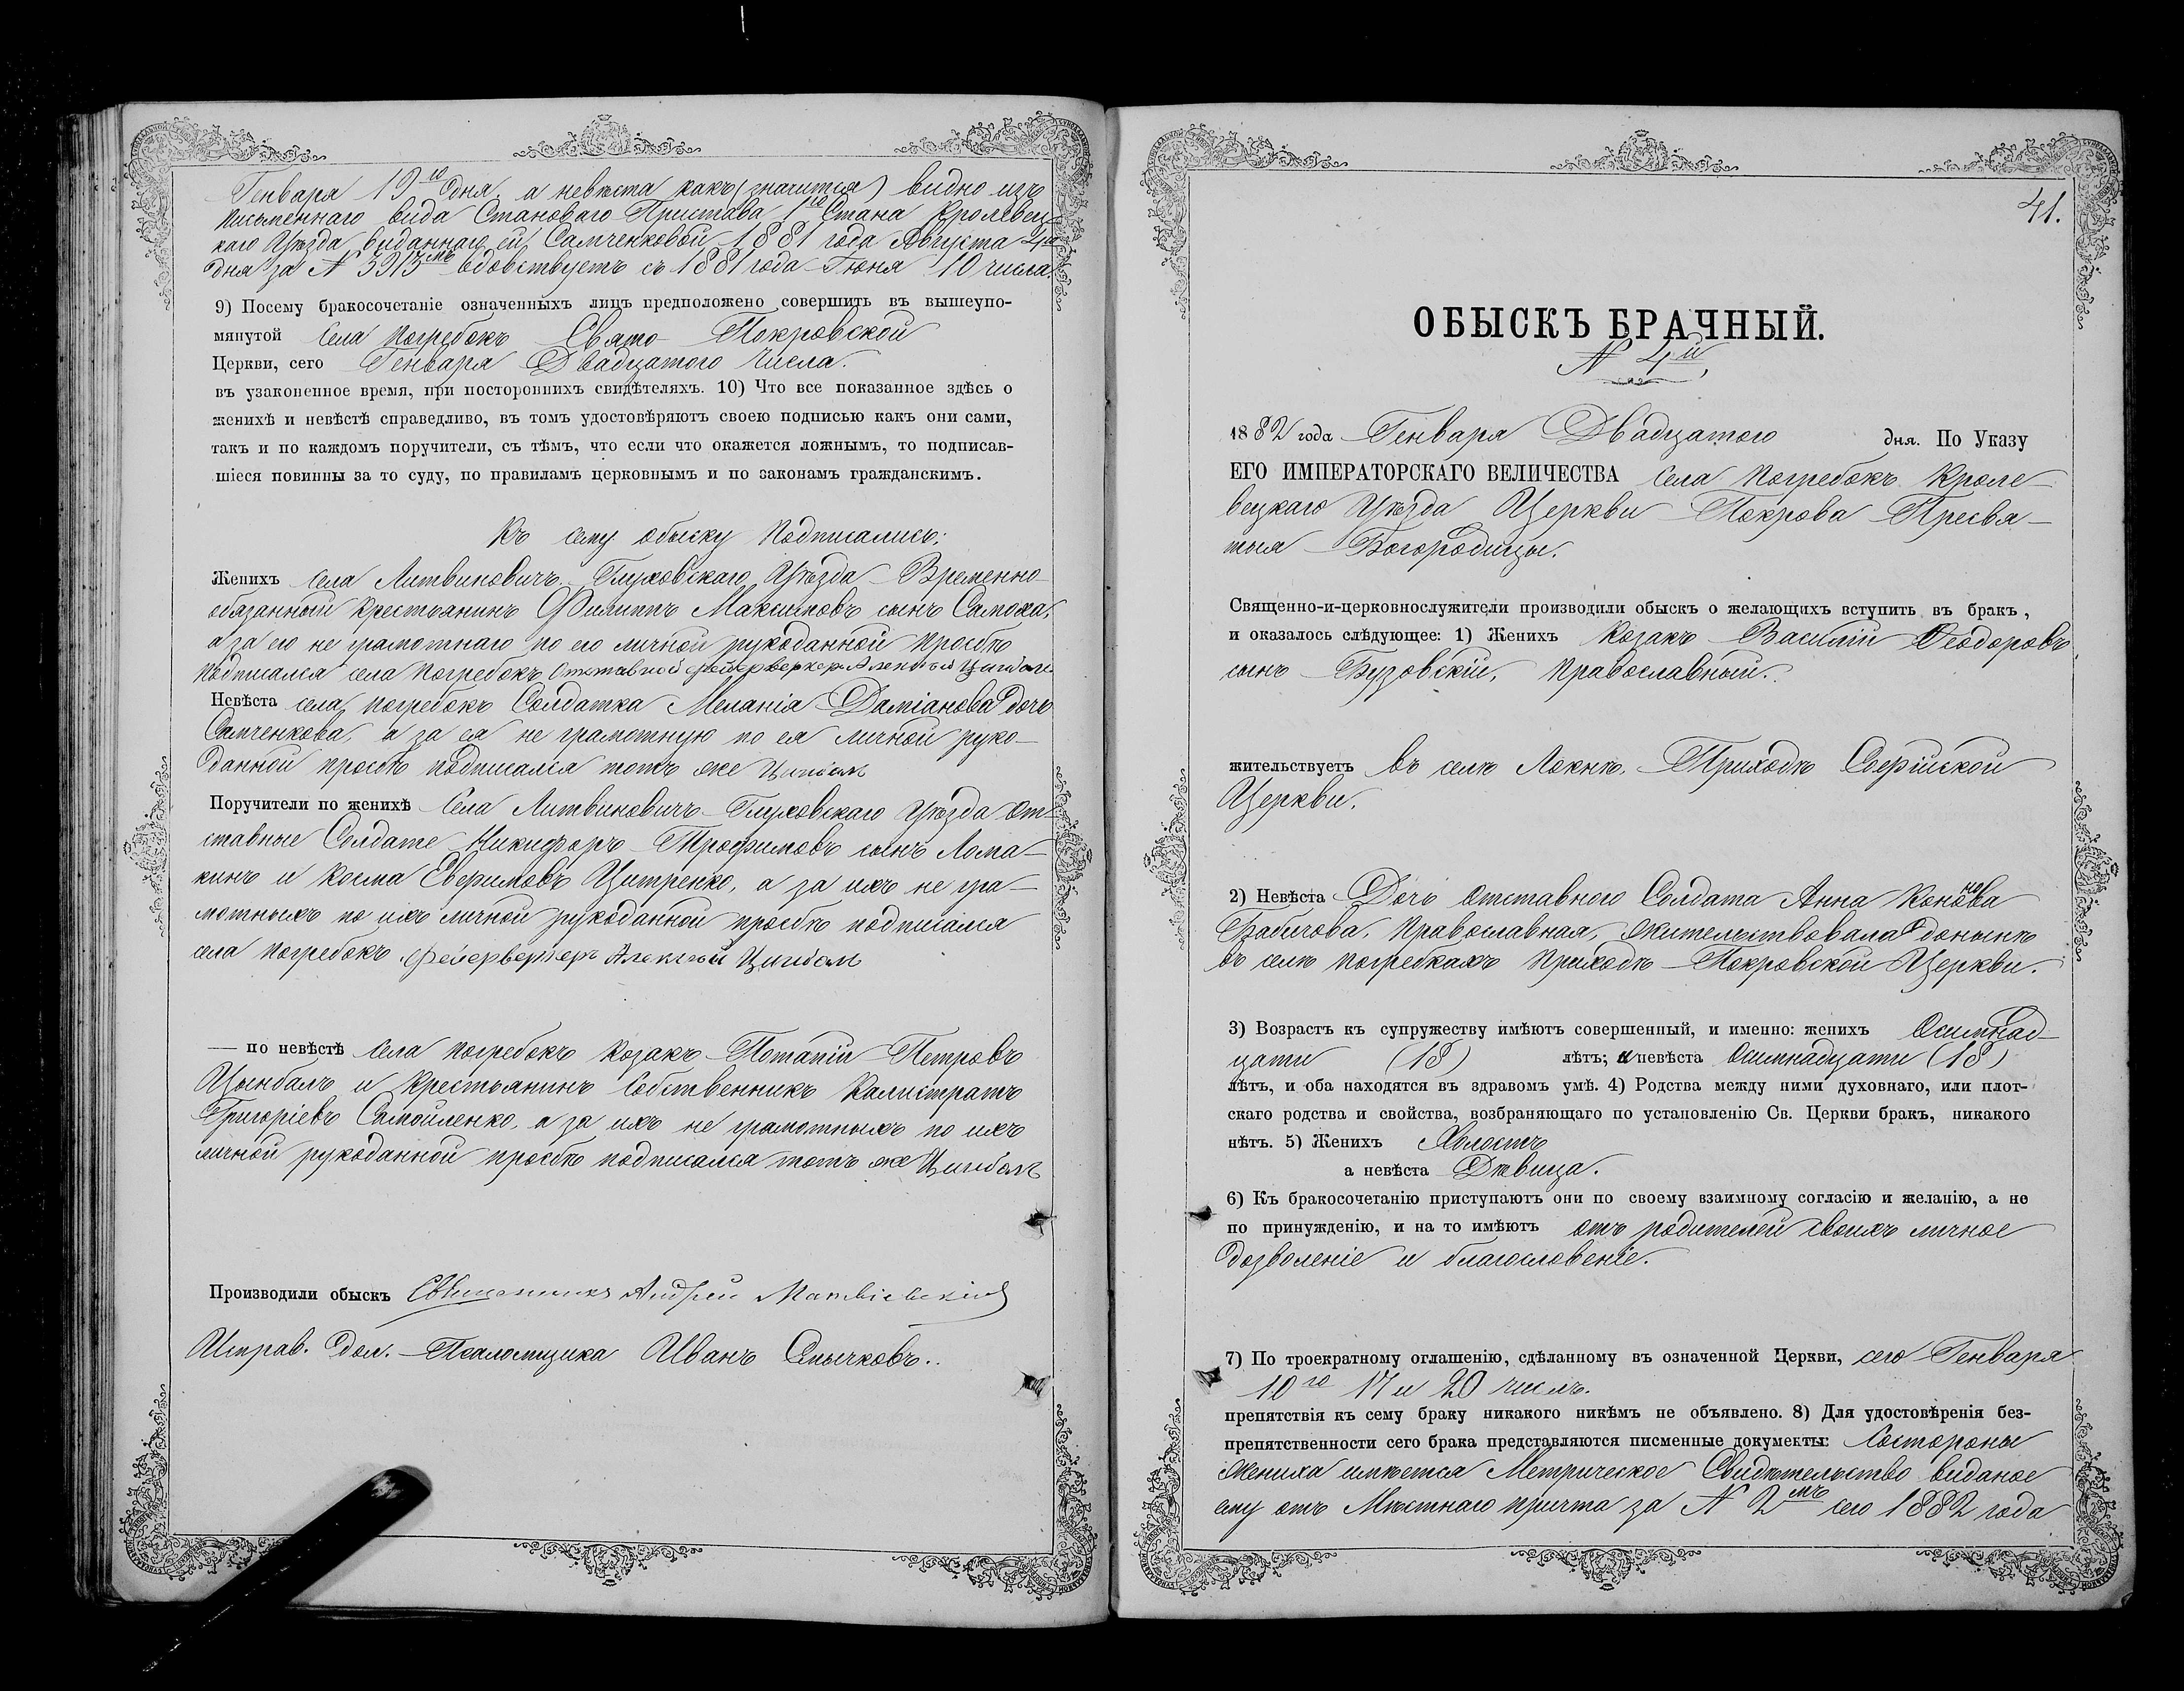 Генваря 19го дня, а невѣста какъ (значится) видно изъ
письменнаго вида Становаго Пристава 1го Стана Кролевец-
каго Уѣзда виданнаго ей Самченковой 1881 года Августа 4го
дня за N 3913мъ вдовствуетъ съ 1881 года Іюня 10 числа.
9) Посему бракосочетаніе означенныхъ лицъ предположено совершить въ вышеупо-
мянутой Села Погребокъ Свято-Покровской
Церкви, сего Генваря Двадцатого Числа.
въ узаконенное время, при постороннихъ свидѣтеляхъ. 10) Что все показанное здѣсь о
женихѣ и невѣстѣ справедливо, въ томъ удостовѣряютъ своею подписью какъ они сами,
такъ и по каждомъ поручители, съ тѣмъ, что если что окажется ложнымъ, то подписав-
шіеся повинны за то суду, по правиламъ церковнымъ и по законамъ гражданскимъ.
Къ сему обыску Подписались:
Женихъ Села Литвиновичъ Глуховскаго Уѣзда Временно-
обязанный крестьянинъ Филиппъ Максимовъ сынъ Самоха,
а за его не грамотнаго по его личной рукоданной просьбѣ
подписался села Погребокъ Отставной фейерверкер Алексѣй Цинбал
Невѣста села Погребокъ Солдатка Меланія Даміанова дочь
Самченкова, а за ея не грамотную по ея личной руко-
данной просьбѣ подписался тотъ же Цинбалъ
Поручители по женихѣ Села Литвиновичъ Глуховскаго Уѣзда От-
ставные Солдате Никифоръ Трофимовъ сынъ Лома-
кинъ и Косма Евфимовъ Цитренко, а за ихъ не гра-
мотныхъ по ихъ личной рукоданной просьбѣ подписался
села Погребокъ фейерверкеръ Алексѣй Цинбалъ
— по невѣстѣ Села Погребокъ Козакъ Потапій Петровъ
Цынбалъ и Крестьянинъ Собственникъ Калистратъ
Григоріевъ Самойленко, а за ихъ не грамотныхъ по ихъ
личной рукоданной просьбѣ подписался тотъ же Цинбалъ
Производили обыскъ Священникъ Андрей Матвіевскій
Исправ. дол. Псаломщика Иванъ Смычковъ..
41.
ОБЫСКЪ БРАЧНЫЙ.
N 4й,
1882 года Генваря Двадцатого дня. По Указу
ЕГО ИМПЕРАТОРСКАГО ВЕЛИЧЕСТВА Села Погребокъ Кроле-
вецкаго Уѣзда Церкви Покрова Пресвя-
тыя Богородицы.
Священно-и-церковнослужители производили обыскъ о желающихъ вступить въ бракъ,
и оказалось слѣдующее: 1) Женихъ Козакъ Василій Ѳеодоровъ
сынъ Бузовскій, Православный.
жительствуетъ въ селѣ Локнѣ, Приходѣ Софійской
Церкви.
2) Невѣста Дочь Отставного Солдата Анна Кононова
Бабичова, Православная, жительствовала донынѣ
въ селѣ Погребкахъ Приходѣ Покровской Церкви.
3) Возрастъ къ супружеству имѣютъ совершенный, и именно: женихъ Осимнад-
цати (18) лѣтъ; и невѣста Осимнадцати (18)
лѣтъ, и оба находятся въ здравомъ умѣ. 4) Родства между ними духовнаго, или плот-
скаго родства и свойства, возбраняющаго по установленію Св. Церкви бракъ, никакого
нѣтъ. 5) Женихъ Холостъ
а невѣста Дѣвица.
6) Къ бракосочетанію приступаютъ они по своему взаимному согласію и желанію, а не
по принужденію, и на то имѣютъ отъ родителей своихъ личное
дозволеніе и благословеніе.
7) По троекратному оглашенію, сдѣланному въ означенной Церкви, сего Генваря
10го 17 и 20 числъ.
препятствія къ сему браку никакого никѣмъ не объявлено. 8) Для удостовѣренія без-
препятственности сего брака представляются писменные документы: Состороны
Жениха имѣется Метрическое Свидѣтельство виданое
ему отъ Мѣстнаго причта за N 2мъ сего 1882 года